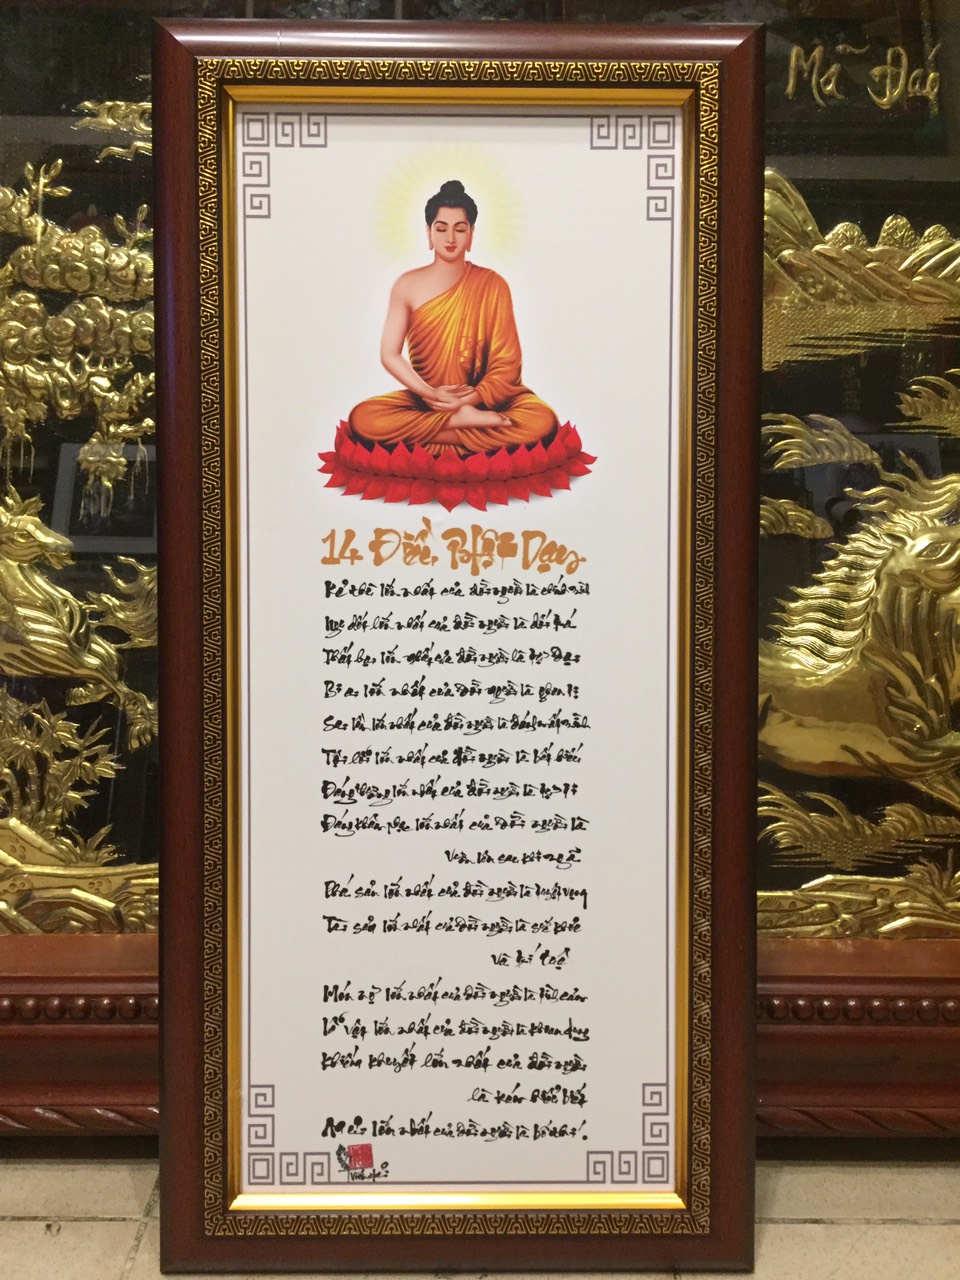 Mã Đáo
14 Điều Phật Dạy
Kẻ thù lớn nhất của đời người là chính mình
Ngu dốt lớn nhất của đời người là dối trá
Thất bại lớn nhất của đời người là tự Đại
Bi ai lớn nhất của Đời người là ghen tị
Sai lầm lớn nhất của đời người là đánh mất mình
Tội lỗi lớn nhất của đời người là bất hiếu
Đáng thương lớn nhất của đời người là tự ti
Đáng khâm phục lớn nhất của đời người là
vươn lên sau khi ngã
Phá sản lớn nhất của đời người là tuyệt vọng
Tài sản lớn nhất của đời người là sức khỏe
và trí tuệ
Món nợ lớn nhất của đời người là tình cảm
Lễ vật lớn nhất của đời người là khoan dung
Khiếm khuyết lớn nhất của đời người
là kém hiểu biết
An ủi lớn nhất của đời người là bố thí.